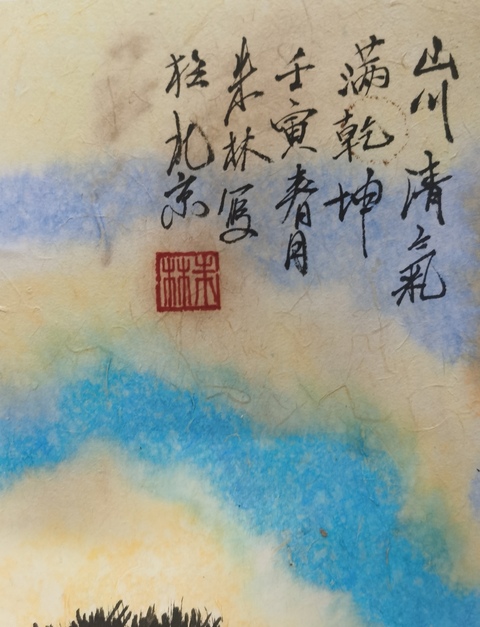 山川清氣
满乾坤
壬寅春月
朱林写
於北京
朱林